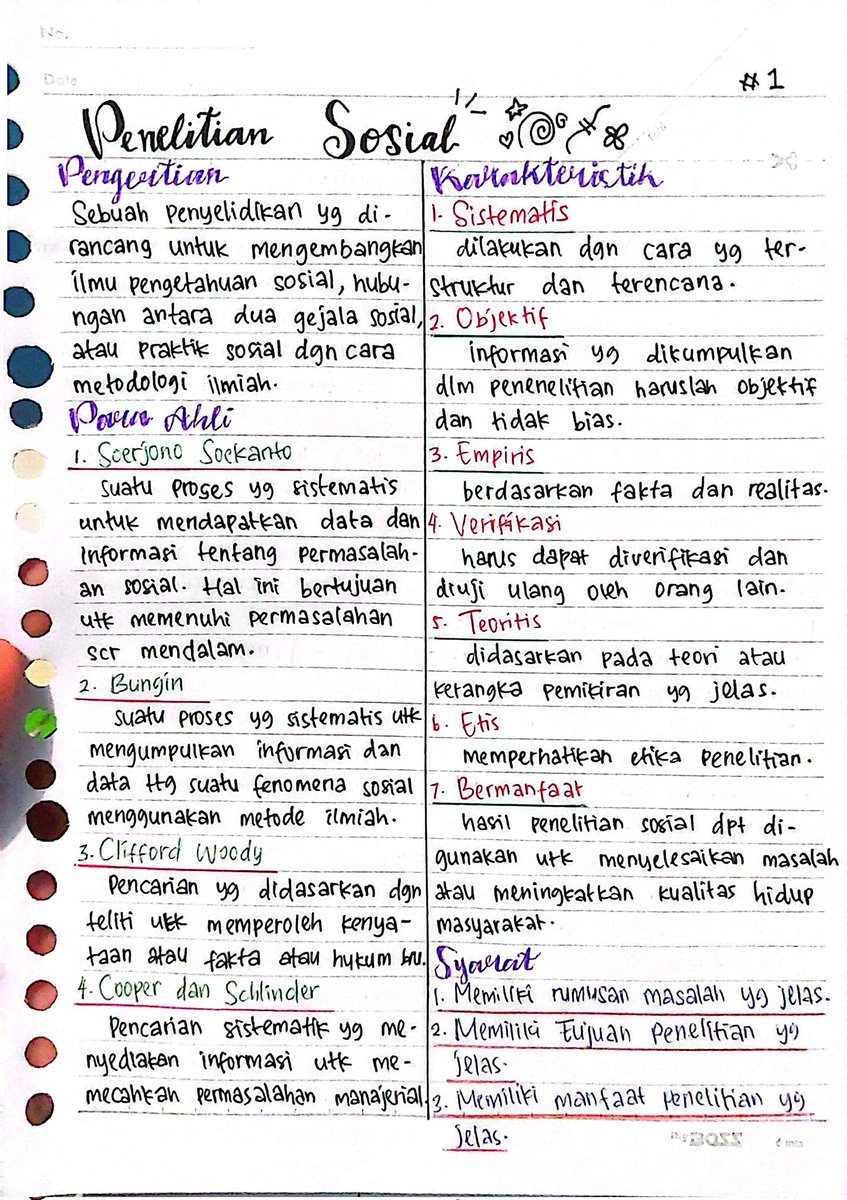 No.
Date
#1
Penelitian Sosial
Pengertian
Sebuah penyelidikan yg di-
rancang untuk mengembangkan
ilmu pengetahuan sosial, hubu-
ngan antara dua gejala sosial,
atau praktik sosial dgn cara
metodologi ilmiah.
Para Ahli
1. Soerjono Soekanto
suatu proses yg sistematis
untuk mendapatkan data dan
informasi tentang permasalah-
an sosial. Hal ini bertujuan
utk memenuhi permasalahan
scr mendalam.
2. Bungin
suatu proses yg sistematis utk
mengumpulkan informasi dan
data ttg suatu fenomena sosial
menggunakan metode ilmiah.
3. Clifford Woody
Pencarian yg didasarkan dgn
teliti utk memperoleh kenya-
taan atau fakta atau hukum bru.
4. Cooper dan Schlinder
Pencarian sistematik yg me-
nyediakan informasi utk me-
mecahkan permasalahan manajerial.
Karakteristik
1. Sistematis
dilakukan dgn cara yg ter-
struktur dan terencana.
2. Objektif
informasi yg dikumpulkan
dlm penenelitian haruslah objektif
dan tidak bias.
3. Empiris
berdasarkan fakta dan realitas.
4. Verifikasi
harus dapat diverifikasi dan
diuji ulang oleh orang lain.
5. Teoritis
didasarkan pada teori atau
kerangka pemikiran yg jelas.
6. Etis
memperhatikan etika penelitian.
7. Bermanfaat
hasil penelitian sosial dpt di-
gunakan utk menyelesaikan masalah
atau meningkatkan kualitas hidup
masyarakat.
Syarat
1. Memiliki rumusan masalah yg jelas.
2. Memiliki tujuan penelitian yg
jelas.
3. Memiliki manfaat penelitian yg
jelas.